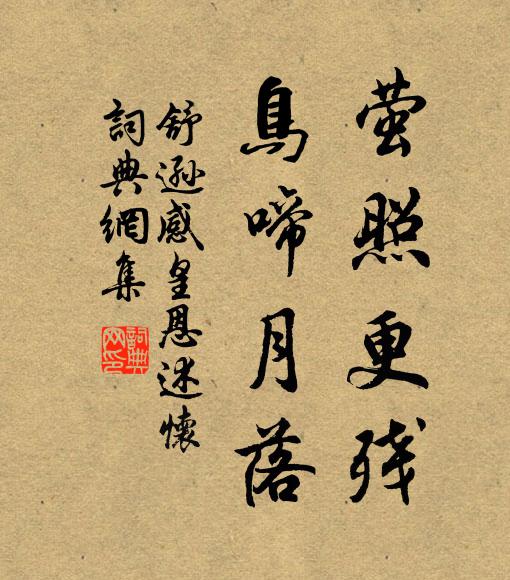 萤照更残
鳥啼月落
舒遜感皇恩述懷
詞典網集
詞典网印